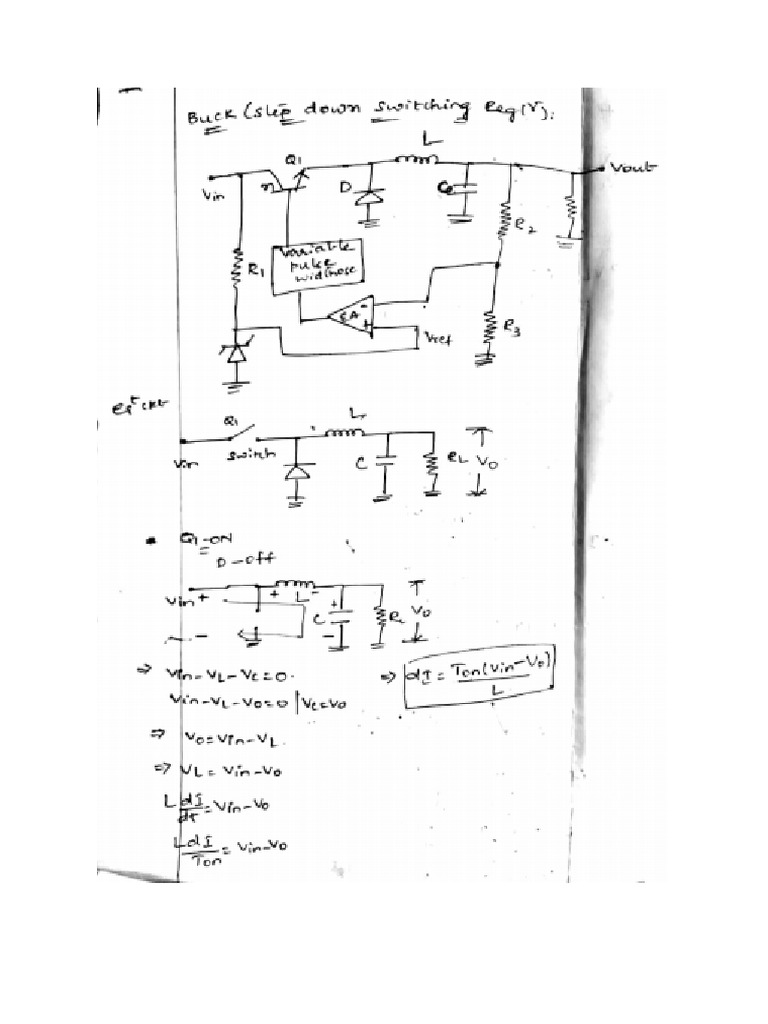 Buck (step down switching Reg(r):
L
Q1
Vin
D
Vout
R1
variable
pulse
R2
EA
-
+
Vref
R3
Eqt ckt
Q1
L
Vin
switch
C
RL
Vo
Q1-ON
D-off
Vin +
+ L -
C
+
-
RL
Vo
-
⇒ Vin-VL-Vc=0.
Vin-VL-Vo=0 | Vc=Vo
⇒ dI = Ton(Vin-Vo)
L
⇒ Vo=Vin-VL.
⇒ VL=Vin-Vo
L dI/dt = Vin-Vo
L dI/Ton = Vin-Vo